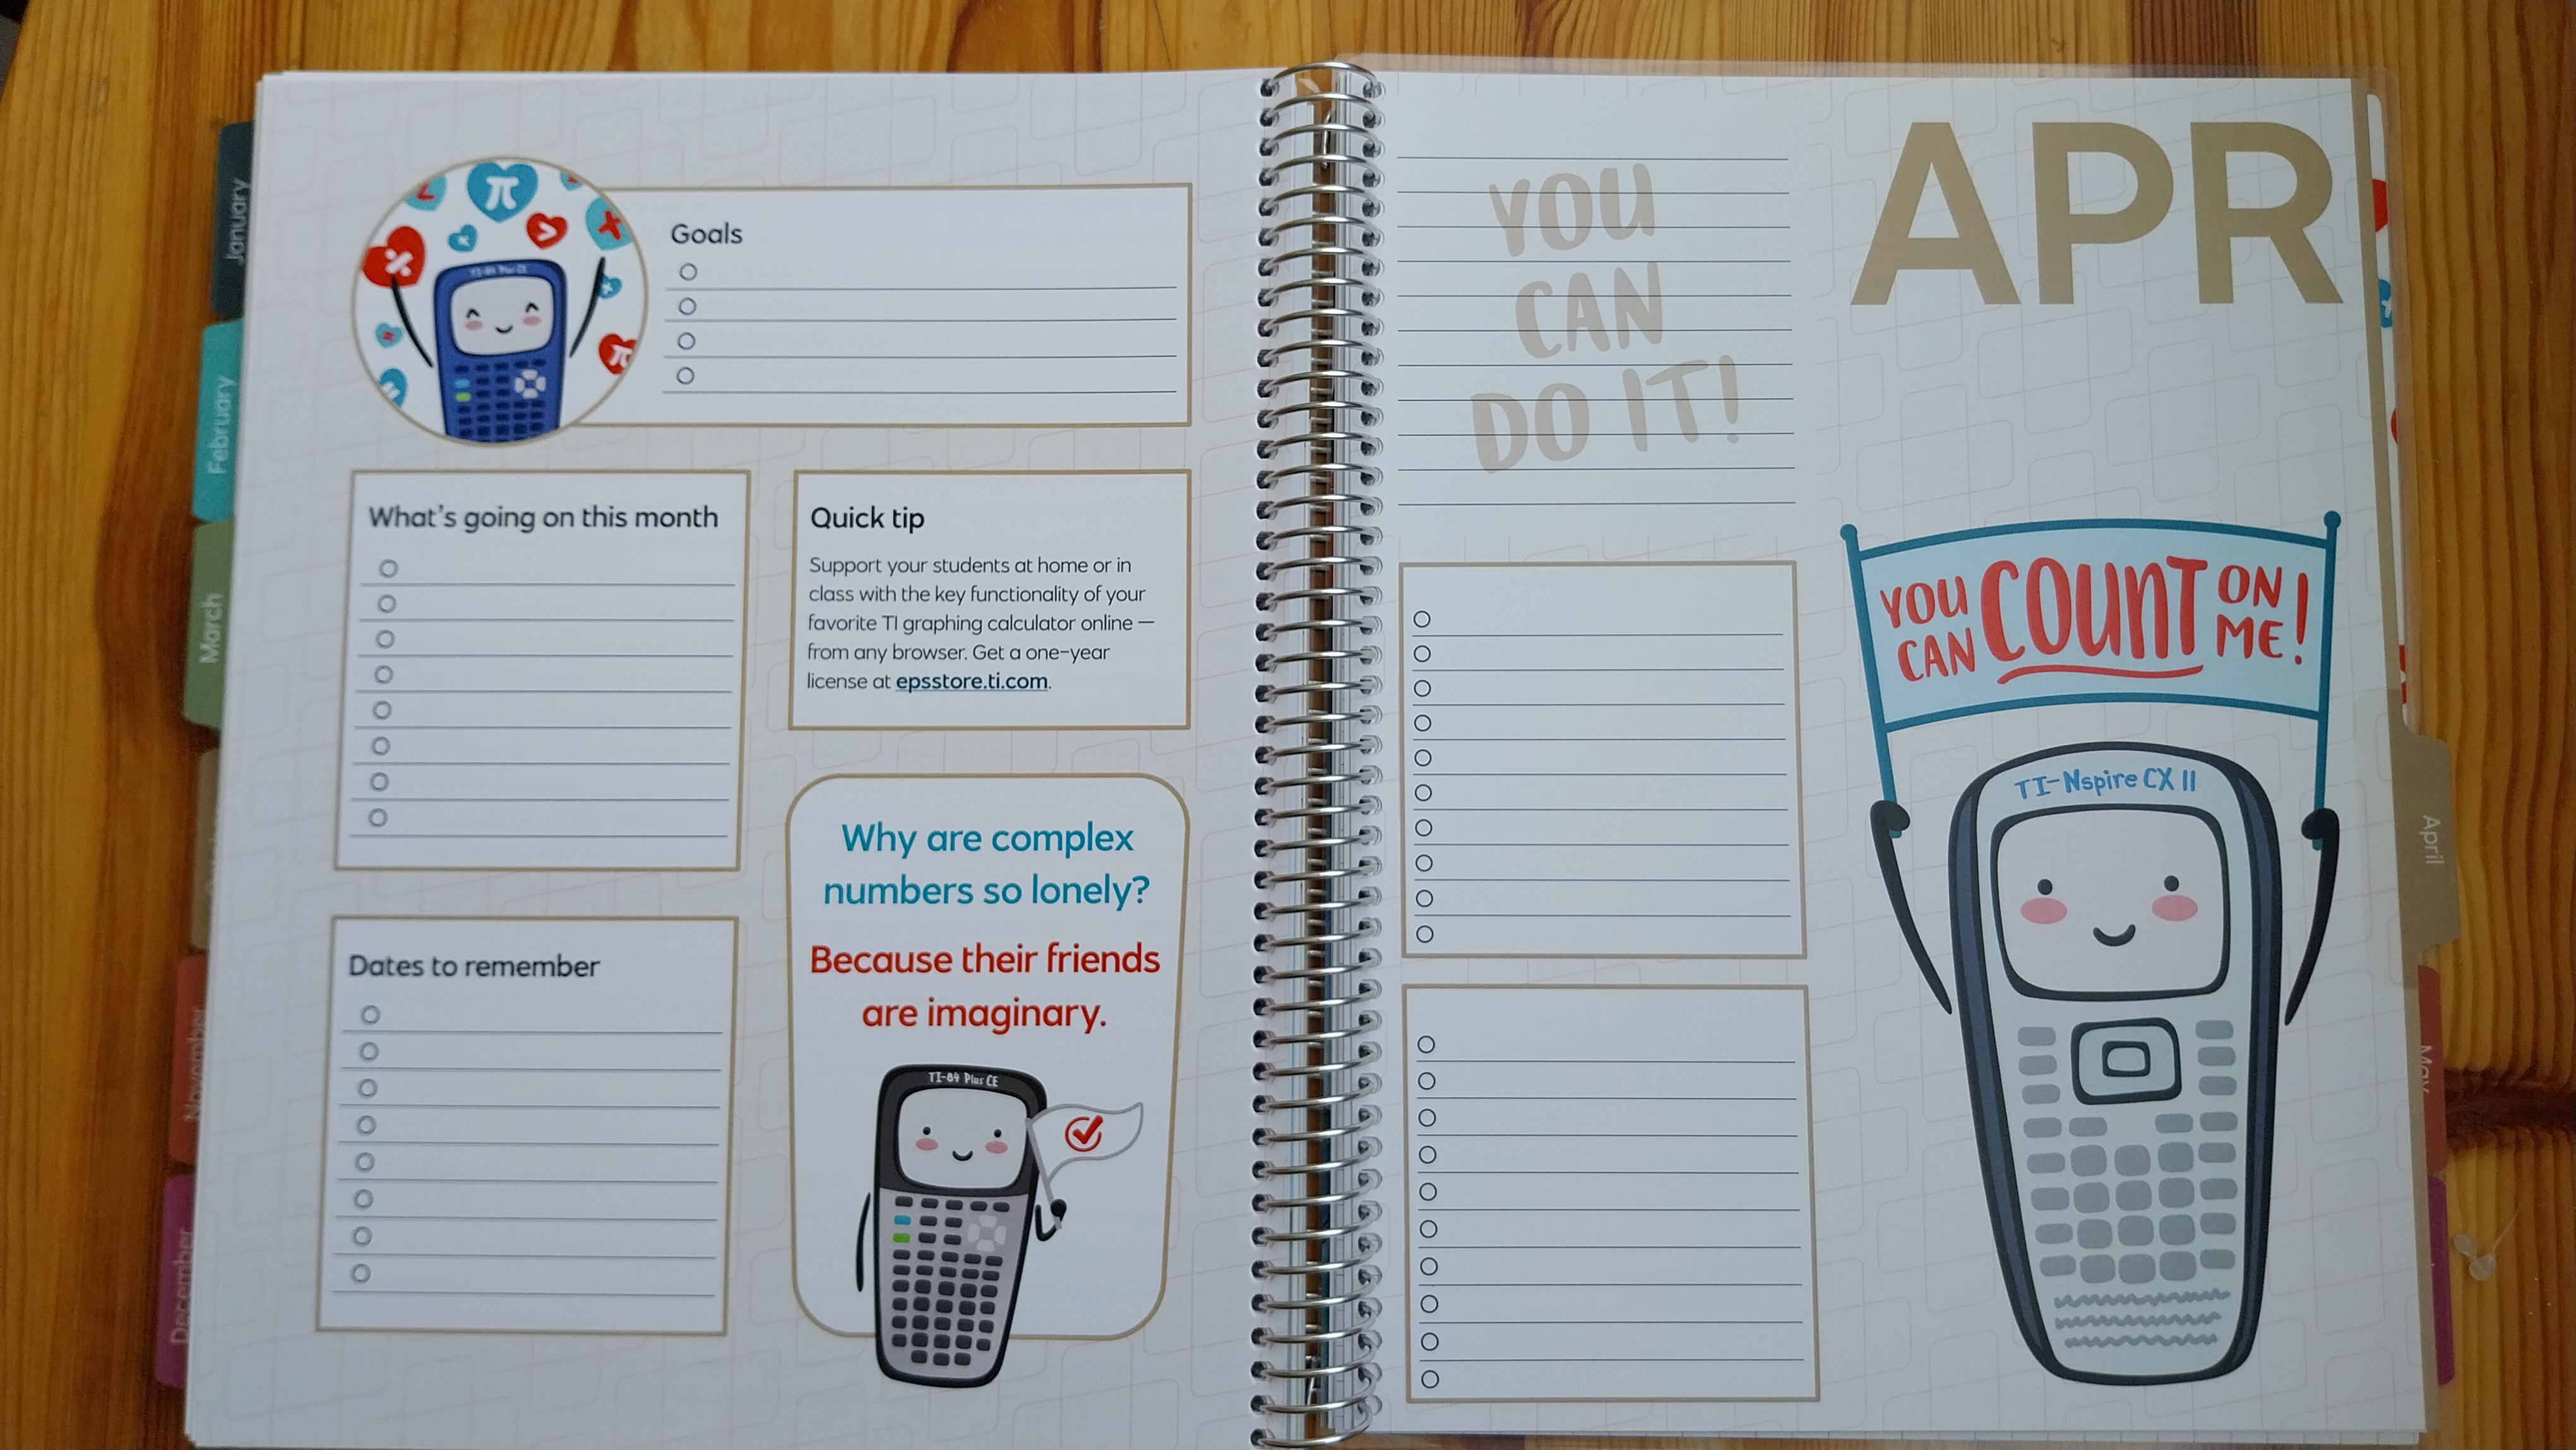 January
February
March
November
December
π
TI-84 Plus CE
Goals
What's going on this month
Quick tip
Support your students at home or in
class with the key functionality of your
favorite TI graphing calculator online —
from any browser. Get a one-year
license at epsstore.ti.com.
Dates to remember
Why are complex
numbers so lonely?
Because their friends
are imaginary.
TI-84 Plus CE
YOU
CAN
DO IT!
APR
YOU CAN COUNT ON ME!
TI-Nspire CX II
April
May